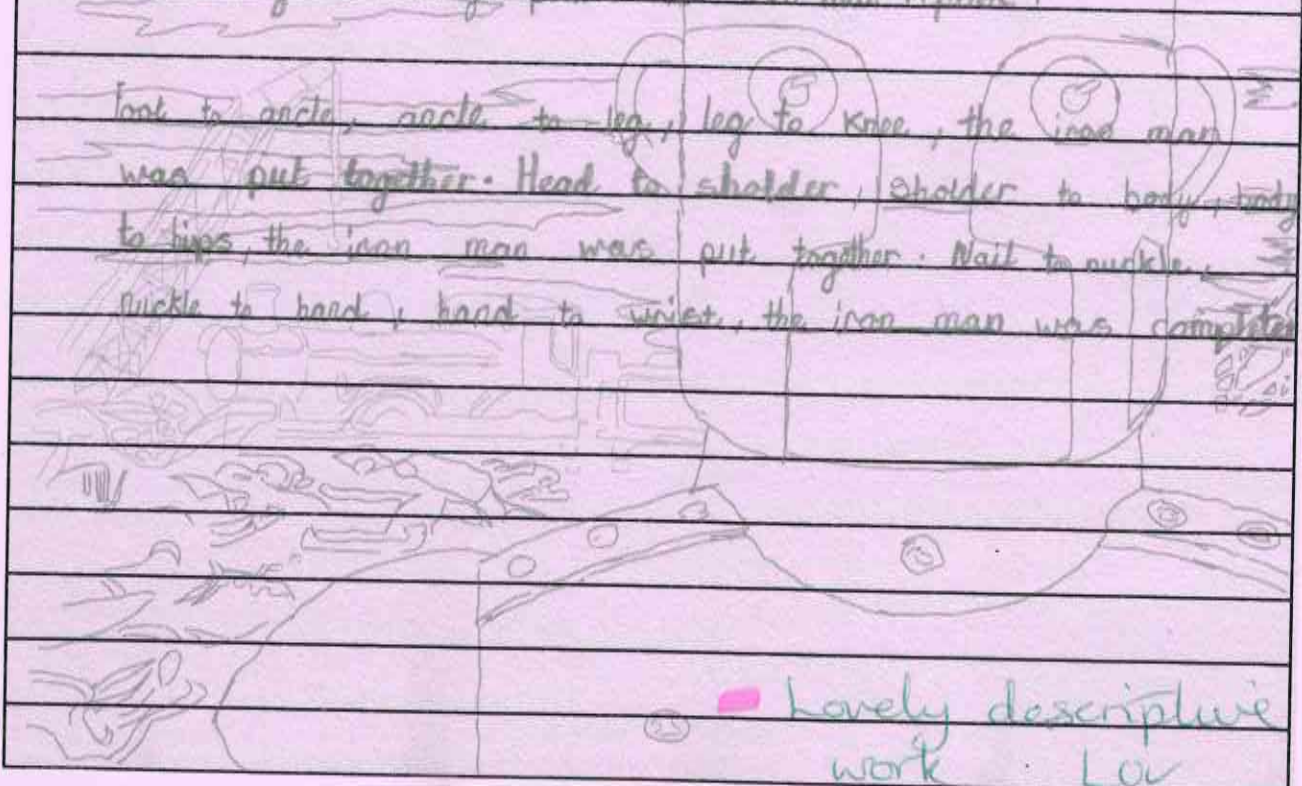 foot to ancle, ancle to leg, leg to knee, the iron man
was put together. Head to sholder, sholder to body, body
to hips, the iron man was put together. Nail to nuckle,
nuckle to hand, hand to wrist, the iron man was complete
Lovely descriptive
work